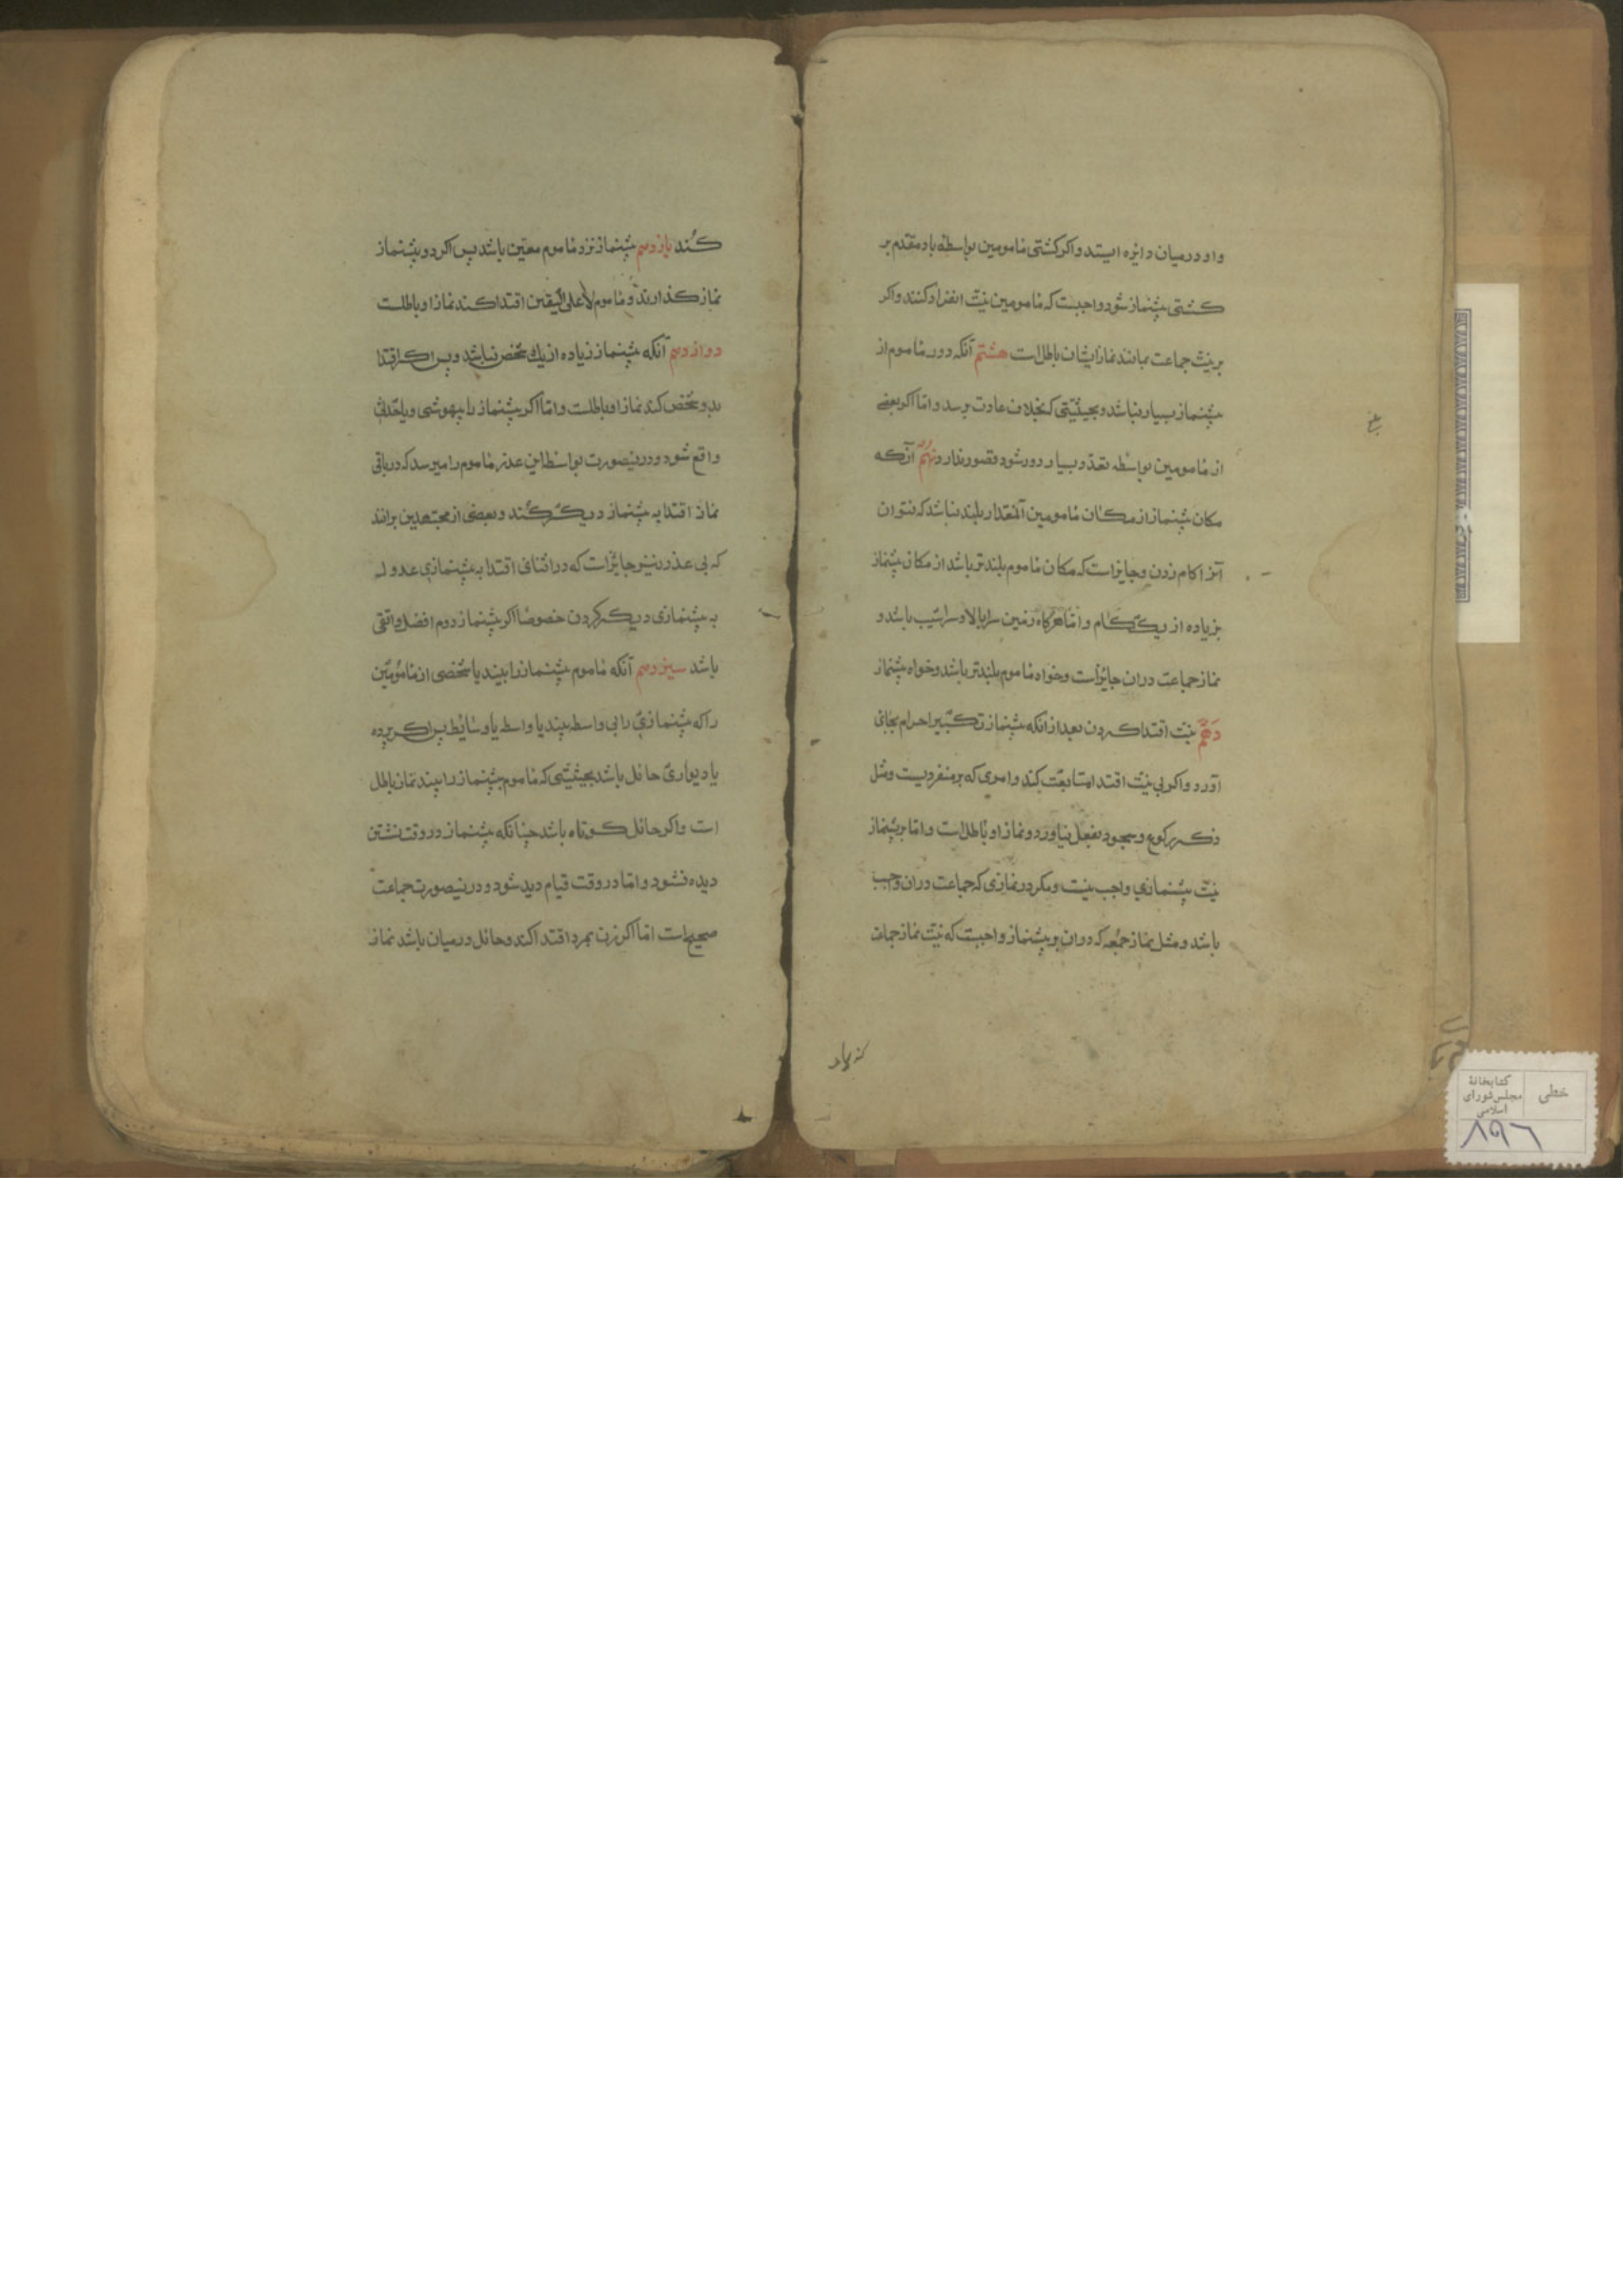 و او در میان دایره ایستد و اکر کشتی مامومین بواسطه باد مقدم بر
کشتی پیشنماز شود واجبست که مامومین نیّت انفراد کنند و اکر
بر نیّت جماعت بمانند نماز ایشان باطل است هشتم آنکه دور ماموم از
پیشنماز بسیار نباشد و بحیثیّتی که بخلاف عادت برسد و امّا اکر بعضی
از مامومین بواسطه تعدّد بسیار دور شود قصور ندارد نهم آنکه
مکان پیشنماز از مکان مامومین آنمقدار بلند نباشد که نتوان
آنرا کام زدن و جایز است که مکان ماموم بلندتر باشد از مکان پیشنماز
بزیاده از یک کام و امّا هرکاه زمین سرابالا و سراشیب باشد و
نماز جماعت دران جائز است و خواه ماموم بلندتر باشد و خواه پیشنماز
دهم نیّت اقتدا کردن بعد از انکه پیشنماز تکبیر احرام بجای
آورد و اکر بی نیّت اقتدا متابعت کند و اموری که بر منفردیست و مثل
ذکر رکوع و سجود بفعل نیاورد و نماز او باطل است و امّا بر پیشنماز
نیّت پیشنمازی واجب نیست و مکر در نمازی که جماعت دران واجب
باشد و مثل نماز جمعه که دران بر پیشنماز واجبست که نیّت نماز جماعت
کند یازدهم پیشنماز نزد ماموم معیّن باشد پس اکر دو پیشنماز
نماز کذارند و ماموم لا علی الیقین اقتدا کند نماز او باطلست
دوازدهم آنکه پیشنماز زیاده از یک شخص نباشد و پس اکر اقتدا
بدو شخص کند نماز او باطلست و امّا اکر پیشنماز را بیهوشی و یا حدثی
واقع شود و درینصورت بواسطه این عذر ماموم را میرسد که در باقی
نماز اقتدا به پیشنماز دیکر کند و بعضی از مجتهدین برانند
که بی عذر نیز جایز است که در اثنای اقتدا به پیشنمازی عدول
به پیشنمازی دیکر کردن خصوصا اکر پیشنماز دوم افضل و اتقی
باشد سیزدهم آنکه ماموم پیشنماز را ببیند یا شخصی از مامومین
را که پیشنمازی را بی واسطه ببیند یا واسطه یا وسایط پس اکر پرده
یا دیواری حائل باشد بحیثیّتی که ماموم پیشنماز را نبیند نماز باطل
است و اکر حائل کوتاه باشد چنانکه پیشنماز در وقت نشستن
دیده نشود و امّا در وقت قیام دیده شود و درینصورت جماعت
صحیح است امّا اکر زن بمرد اقتدا کند و حائل در میان باشد نماز
خطی
کتابخانهٔ
مجلس شورای
اسلامی
۸۹۶